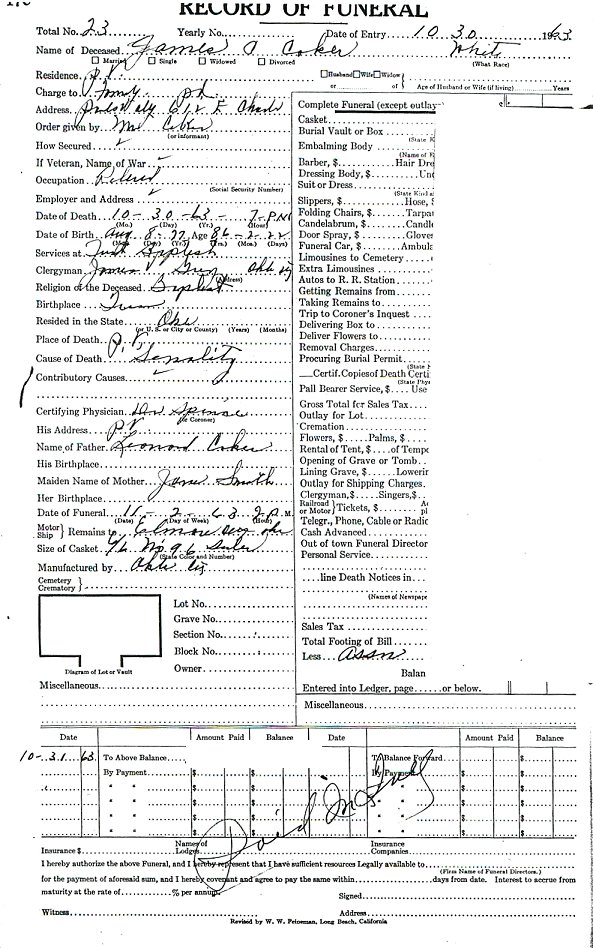 RECORD OF FUNERAL
Total No. 23 Yearly No. Date of Entry 10 30 1963
Name of Deceased James Coker White
Married Single Widowed Divorced (What Race)
Residence P.V. Husband Wife Widow
or or Age of Husband or Wife (if living) Years
Charge to Family
Address Pauls Valley 612 E
Order given by Mrs Coker
(or informant)
How Secured
If Veteran, Name of War
Occupation Retired
(Social Security Number)
Employer and Address
Date of Death 10-30-63-7-PM
(Mo.) (Day) (Yr.) (Hour)
Date of Birth Aug. 8-77 Age 86-2-22
(Mo.) (Day) (Yr.) (Yrs.) (Mo.) (Days)
Services at First Baptist
Clergyman James V. Okla City
(Address)
Religion of the Deceased Baptist
Birthplace
Resided in the State Okla
(or U. S. or City or County) (Years) (Months)
Place of Death P.V.
Cause of Death Senality
Contributory Causes
Certifying Physician Dr Spence
(or Coroner)
His Address P.V.
Name of Father Leonard Coker
His Birthplace
Maiden Name of Mother Jane Smith
Her Birthplace
Date of Funeral 11-2-63 2 P.M.
(Date) (Day of Week) (Hour)
Motor Ship Remains to Elmore City Okla
Size of Casket 9/6 No 96 Silver
(State Color and Number)
Manufactured by Okla City
Cemetery
Crematory
Lot No.
Grave No.
Section No.
Block No.
Owner
Diagram of Lot or Vault
Miscellaneous
Complete Funeral (except outlay
Casket
Burial Vault or Box
(State K
Embalming Body
(Name of E
Barber, $ Hair Dre
Dressing Body, Un
Suit or Dress
(State Kind a
Slippers, $ Hose, $
Folding Chairs, $ Tarpa
Candelabrum, $ Candl
Door Spray, $ Glove
Funeral Car, $ Ambul
Limousines to Cemetery
Extra Limousines
Autos to R. R. Station
Getting Remains from
Taking Remains to
Trip to Coroner's Inquest
Delivering Box to
Deliver Flowers to
Removal Charges
Procuring Burial Permit
(State F
Certif. Copies of Death Certi
(State Phys
Pall Bearer Service, $ Use
Gross Total for Sales Tax
Outlay for Lot
Cremation
Flowers, $ Palms, $
Rental of Tent, $ of Tempo
Opening of Grave or Tomb
Lining Grave, $ Lowerin
Outlay for Shipping Charges
Clergyman, $ Singers, $
Railroad or Motor Tickets, $
Telegr., Phone, Cable or Radio
Cash Advanced
Out of town Funeral Director
Personal Service
line Death Notices in
(Names of Newspape
Sales Tax
Total Footing of Bill
Less Assn
Balan
Entered into Ledger, page or below.
Miscellaneous
Date Amount Paid Balance Date Amount Paid Balance
10-31 63 To Above Balance $ $ To Balance Forward $ $
By Payment $ $ By Payment $ $
" " $ $ " " $ $
" " $ $ " " $ $
" " $ $ " " $ $
" " $ $ " " $ $
Paid In Full
Insurance $ Names of Lodges Insurance Companies
I hereby authorize the above Funeral, and I hereby represent that I have sufficient resources Legally available to
(Firm Name of Funeral Directors.)
for the payment of aforesaid sum, and I hereby covenant and agree to pay the same within days from date. Interest to accrue from
maturity at the rate of % per annum. Signed
Witness Address
Revised by W. W. Peineman, Long Beach, California